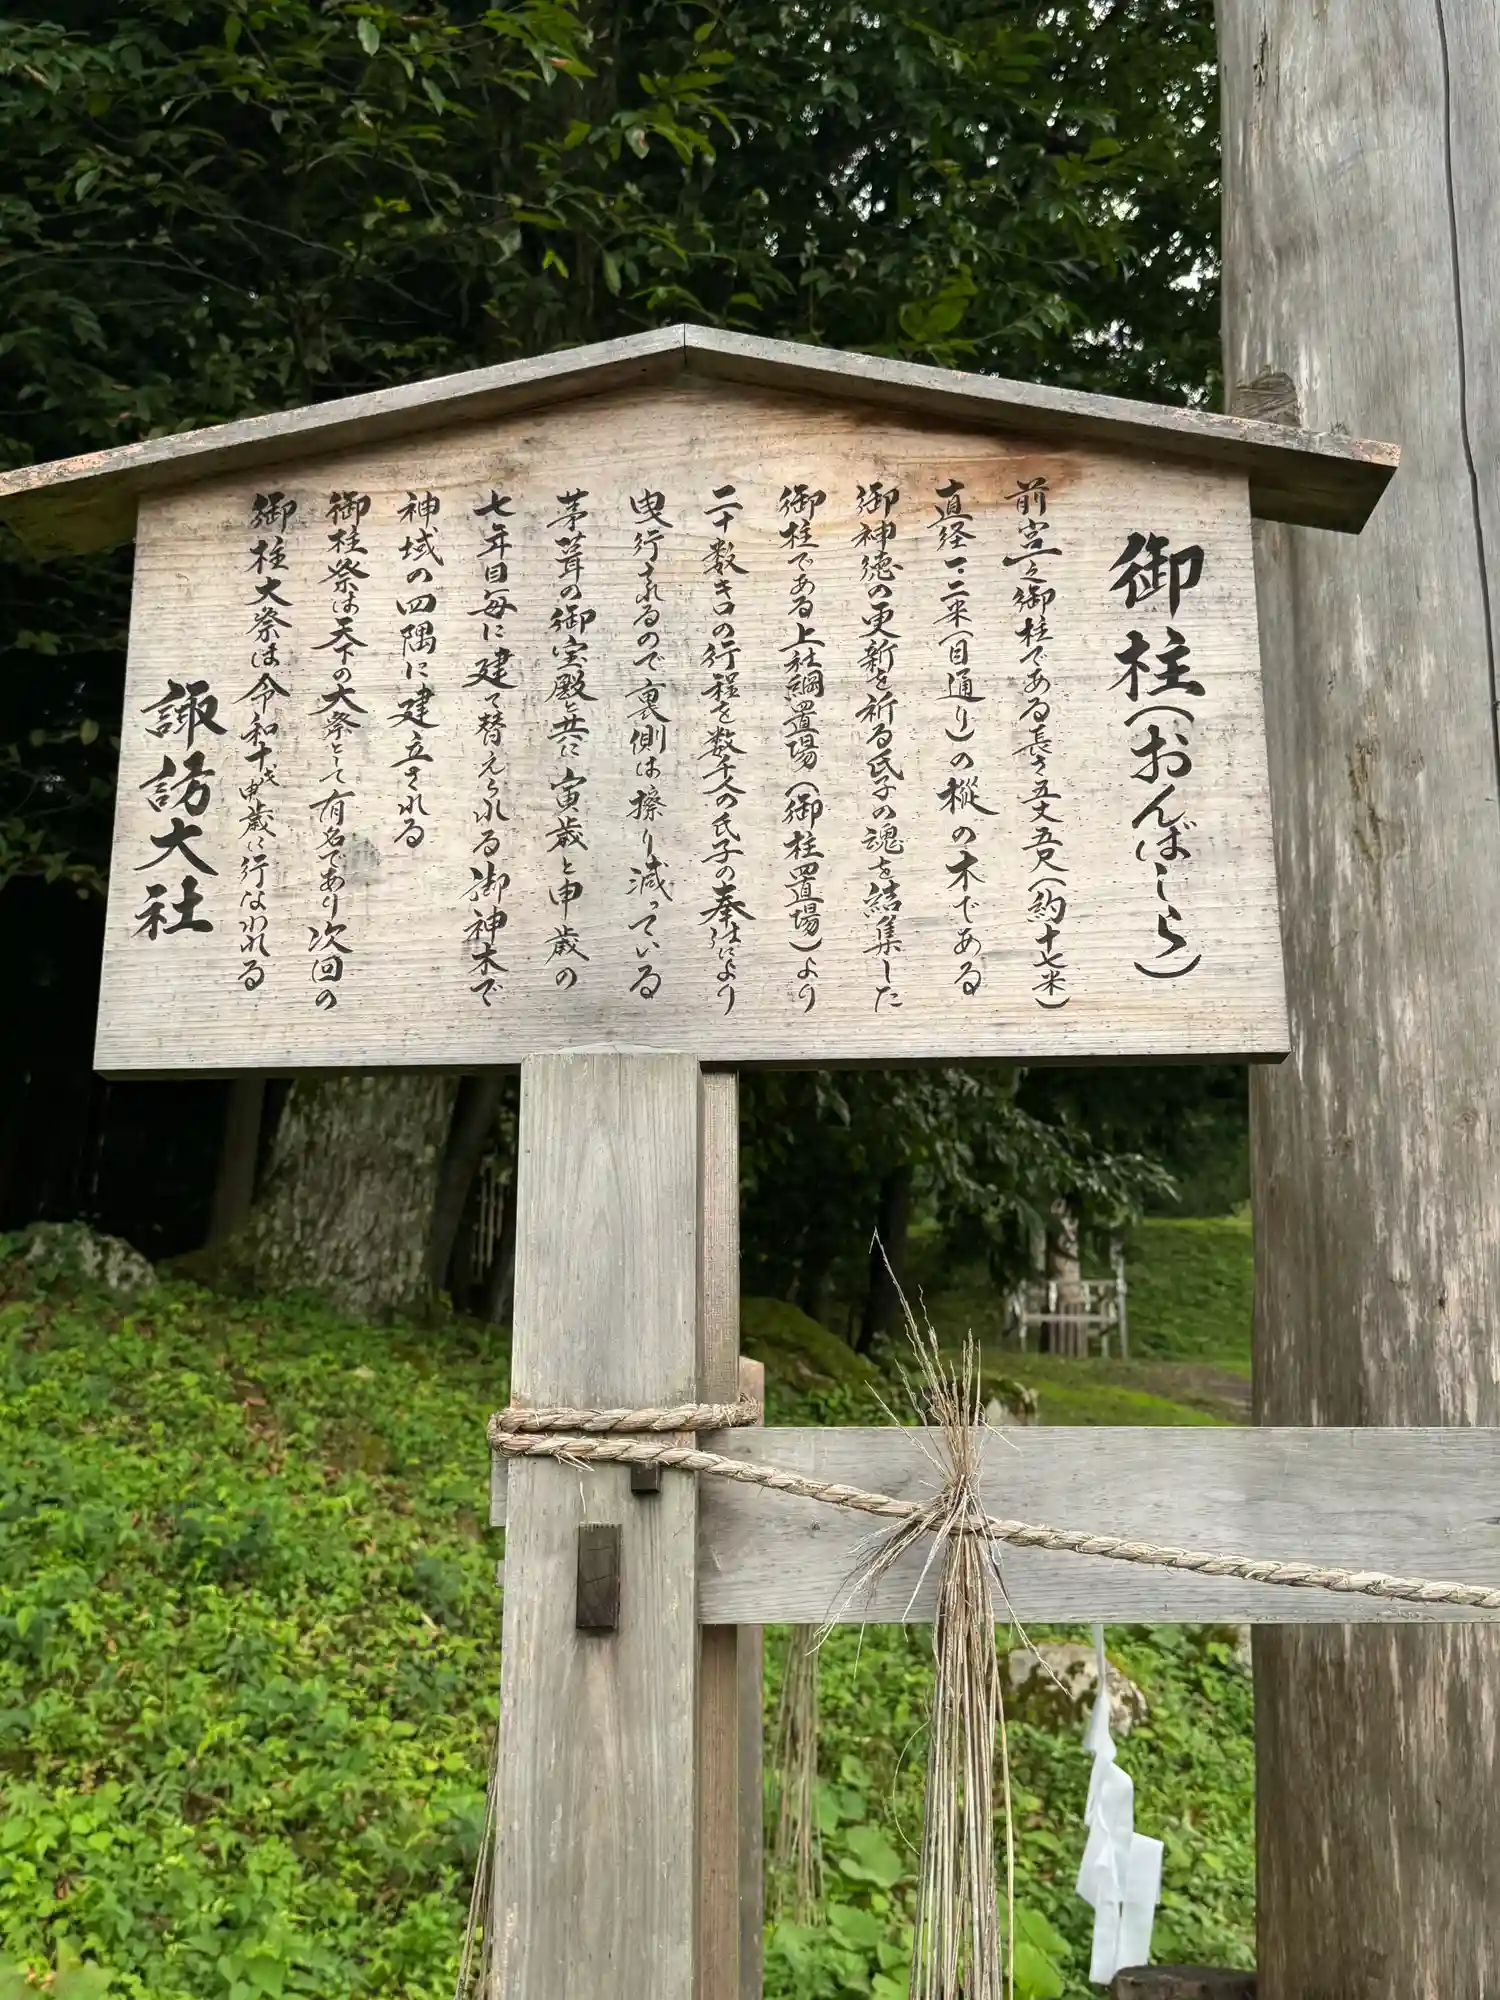 御柱(おんばしら)
前宮一之御柱である長さ五丈五尺(約十七米)
直径一・二米(目通り)の樅の木である
御神徳の更新を祈る氏子の魂を結集した
御柱である上社綱置場(御柱置場)より
二十数キロの行程を数千人の氏子の奉仕により
曳行されるので裏側は擦り減っている
茅葺の御宝殿と共に寅歳と申歳の
七年目毎に建て替えられる御神木で
神域の四隅に建立される
御柱祭は天下の大祭として有名であり次回の
御柱大祭は令和十戊申歳に行なわれる
諏訪大社